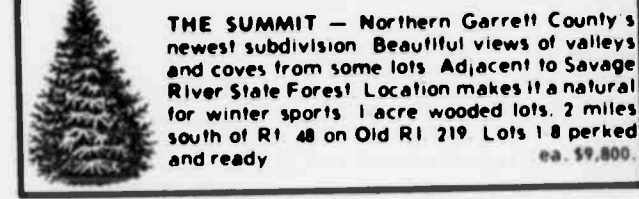 THE SUMMIT — Northern Garrett County's
newest subdivision Beautiful views of valleys
and coves from some lots Adjacent to Savage
River State Forest Location makes it a natural
for winter sports 1 acre wooded lots. 2 miles
south of Rt 48 on Old Rt 219 Lots 1 8 perked
and ready ea. $9,800.